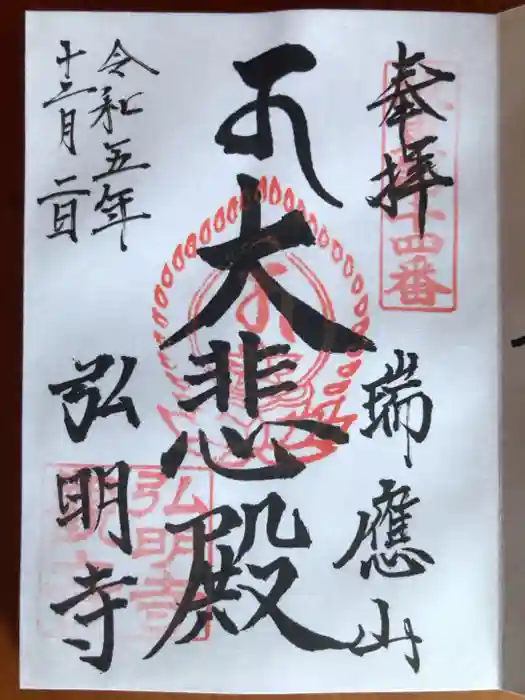 奉拝
瑞應山
大悲殿
令和五年
十二月二日
弘明寺
十四番
弘明寺